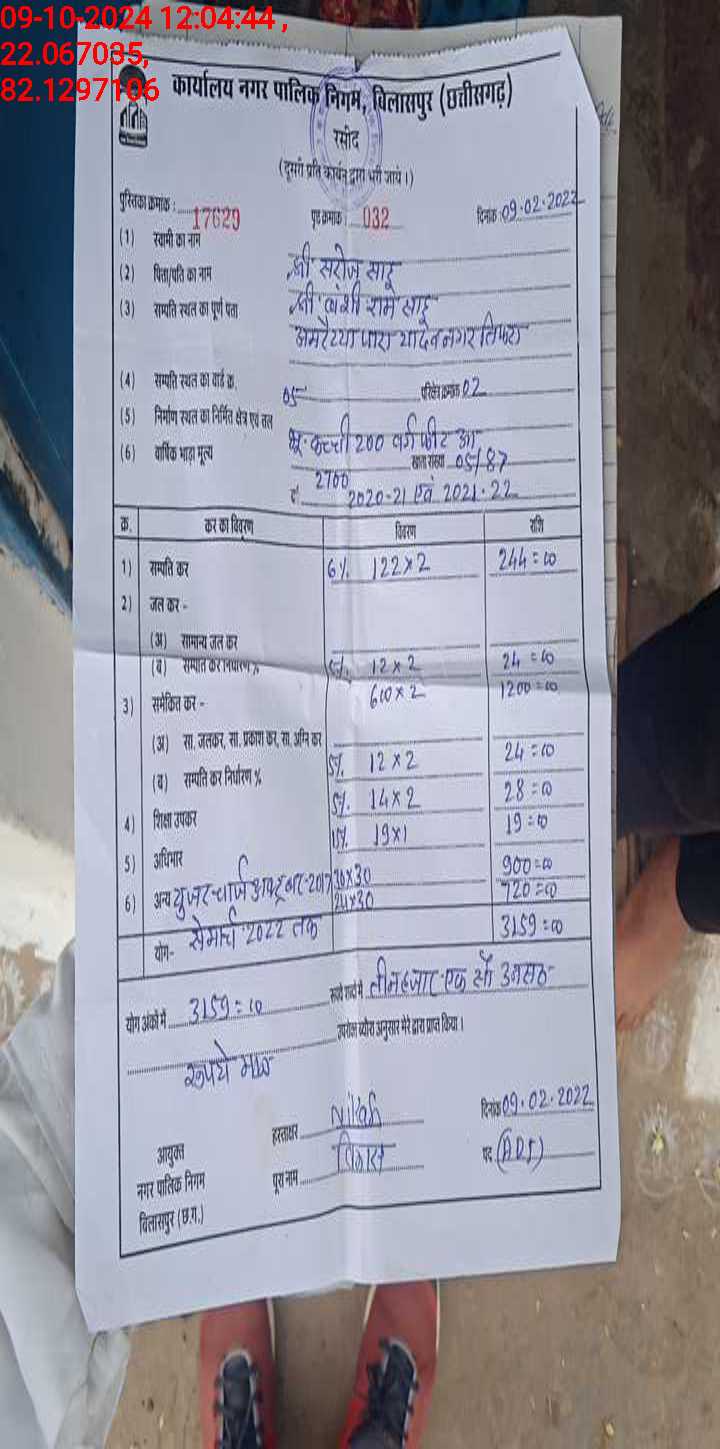 09-10-2024 12:04:44 ,
22.067035,
82.1297106
कार्यालय नगर पालिक निगम, बिलासपुर (छत्तीसगढ़)
रसीद
(दूसरी प्रति कार्बन द्वारा भरी जाये।)
पुस्तिका क्रमांक : 17629 पृष्ठ क्रमांक 032 दिनांक 09.02.2022
(1) स्वामी का नाम श्री सरोज साहू
(2) पिता/पति का नाम श्री बंशी राम साहू
(3) सम्पति स्थल का पूर्ण पता अमरैय्या पारा यादव नगर तिफरा
(4) सम्पति स्थल का वार्ड क्र. 05 परिक्षेत्र क्रमांक 02
(5) निर्माण स्थल का निर्मित क्षेत्र एवं तल भू. कच्ची 200 वर्ग फीट आ
(6) वार्षिक भाड़ा मूल्य 2700 खाता संख्या 05/87
2020-21 एवं 2021-22
क्र. कर का विवरण विवरण राशि
1) सम्पति कर 6% 122x2 244=00
2) जल कर -
(अ) सामान्य जल कर
(ब) सम्पति कर निर्धारण % 12x2 24=00
3) समेकित कर - 600x2 1200=00
(अ) सा. जलकर, सा. प्रकाश कर, सा. अग्नि कर
(ब) सम्पति कर निर्धारण % 5% 12x2 24=00
4) शिक्षा उपकर 5% 14x2 28=00
5) अधिभार 19x1 19=00
6) अन्य युजर चार्ज अक्टूबर-2017 30x30 900=00
24x30 720=00
से मार्च 2022 तक
योग- 3159=00
योग अंको में 3159=00 रूपये शब्दों में तीन हजार एक सौ उनसठ
रूपये मात्र उपरोक्त ब्योरा अनुसार मेरे द्वारा प्राप्त किया।
आयुक्त हस्ताक्षर दिनांक 09.02.2022
नगर पालिक निगम पूरा नाम विकास पद
बिलासपुर (छ.ग.)